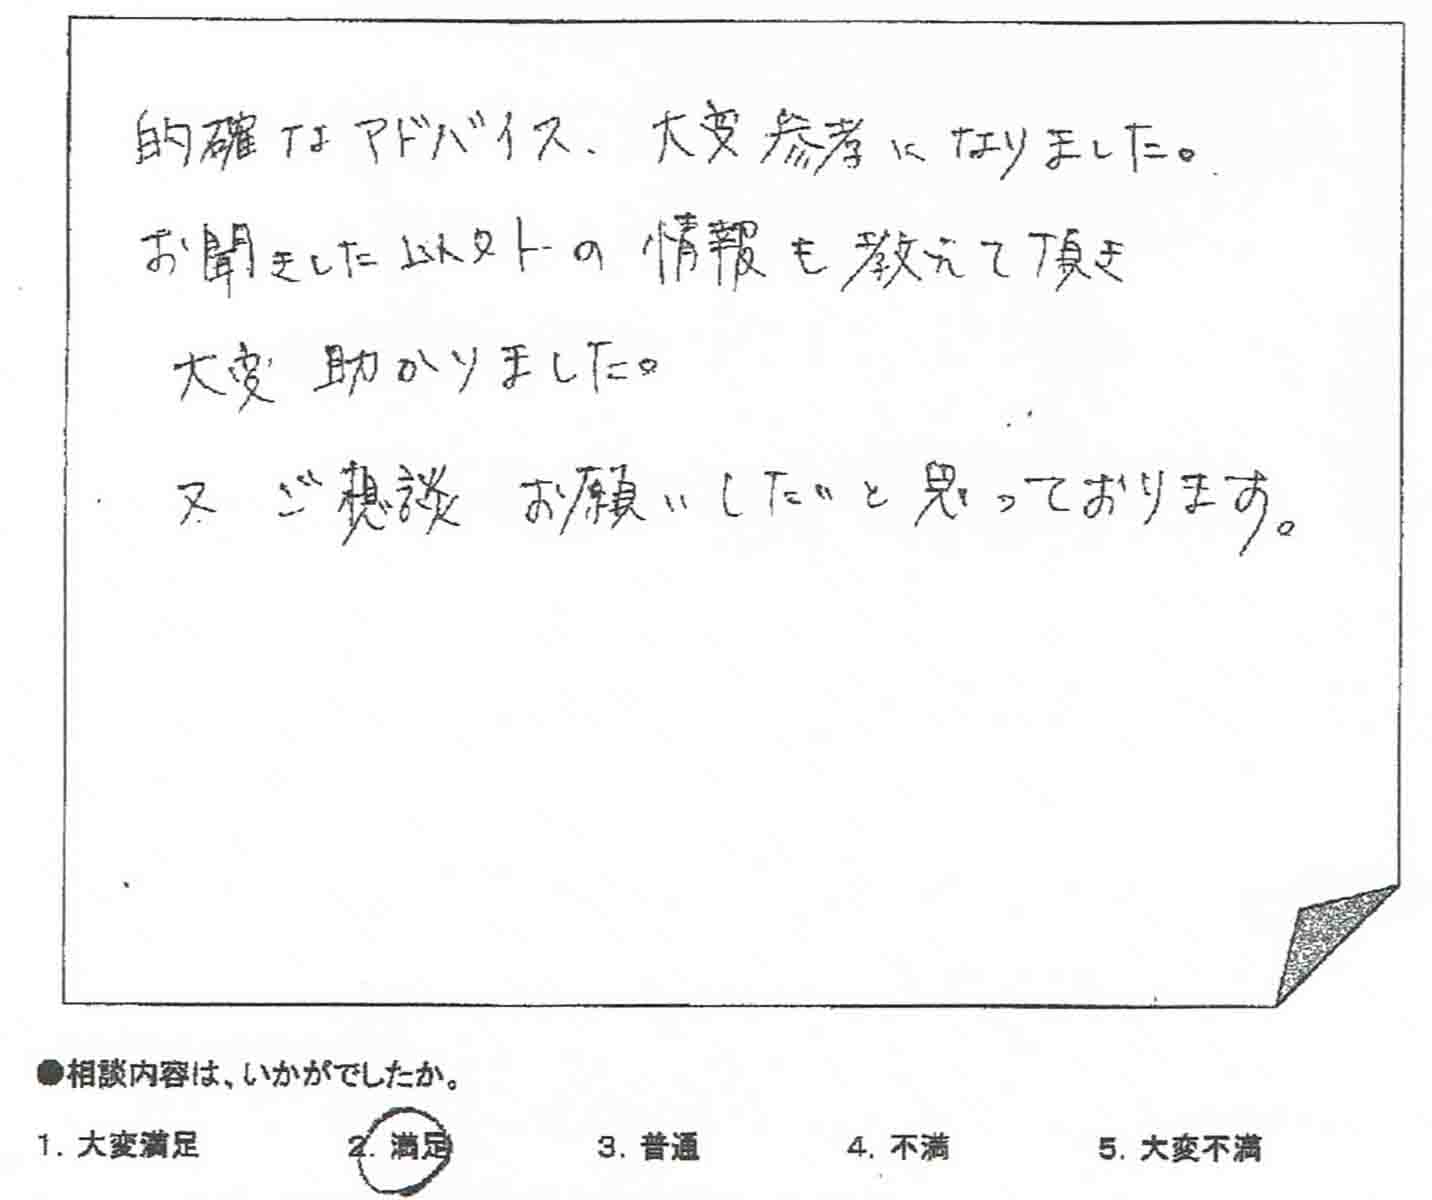 的確なアドバイス、大変参考になりました。
お聞きした以外の情報も教えて頂き
大変助かりました。
又ご想談お願いしたいと思っております。
●相談内容は、いかがでしたか。
1. 大変満足 2. 満足 3. 普通 4. 不満 5. 大変不満